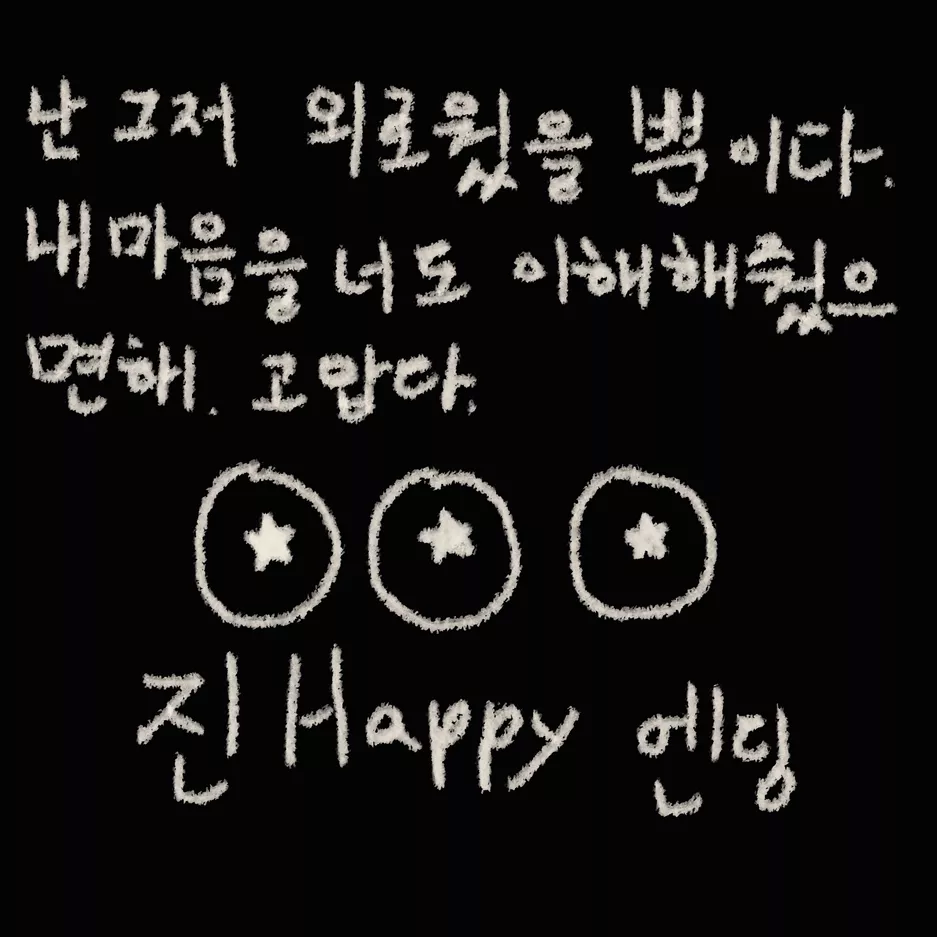 난 그저 외로웠을 뿐이다.
내 마음을 너도 이해해줬으
면해. 고맙다.
진 Happy 엔딩